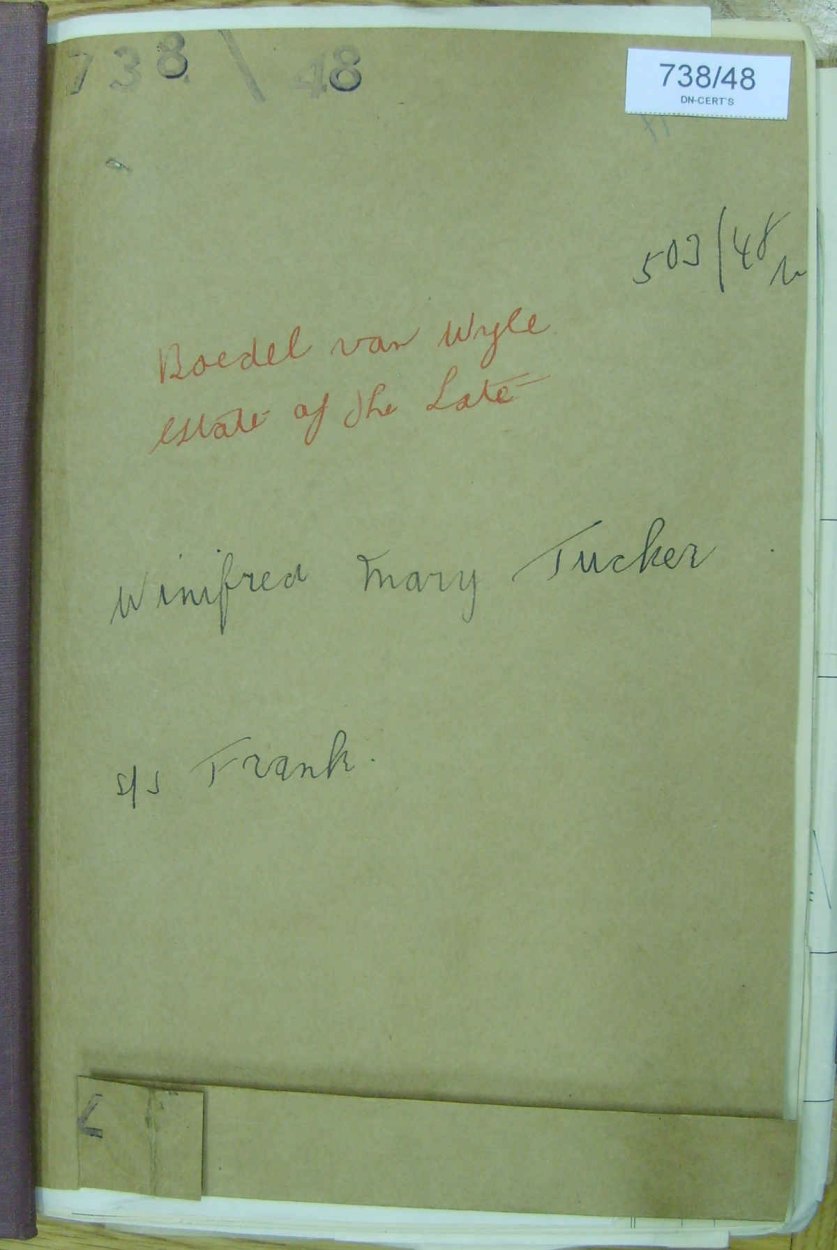 738/48
738/48
DN-CERT'S
503/48
Boedel van Wyle
Estate of the Late
Winifred Mary Tucker
s/s Frank.